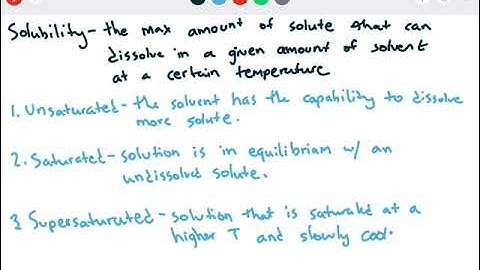 Solubility - the max amount of solute that can
dissolve in a given amount of solvent
at a certain temperature
1. Unsaturated - the solvent has the capability to dissolve
more solute.
2. Saturated - solution is in equilibriam w/ an
undissolved solute.
3. Supersaturated - solution that is saturated at a
higher T and slowly cool.